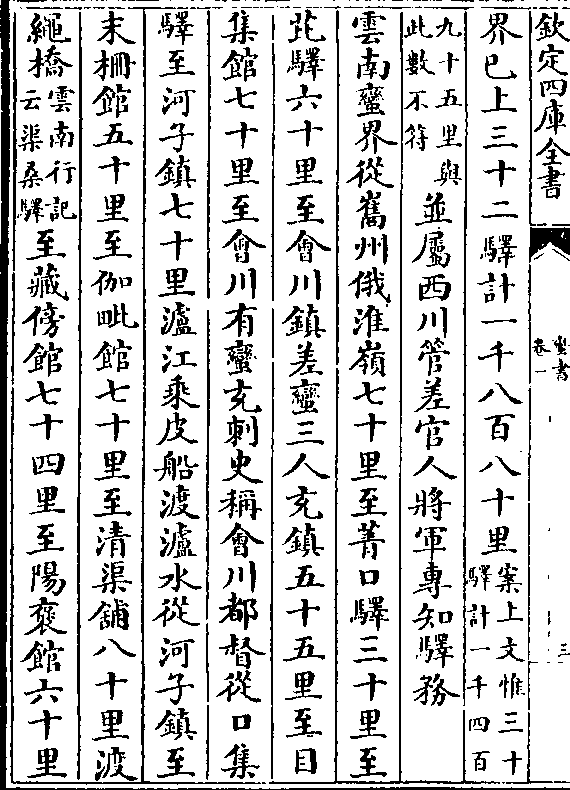 欽定四庫全書
蠻書
卷一
三
界已上三十二驛計一千八百八十里案上文惟三十驛計一千四百
九十五里與此數不符並屬西川管差官人將軍專知驛務
雲南蠻界從嶲州俄淮嶺七十里至菁口驛三十里至
芘驛六十里至會川鎮差蠻三人充鎮五十五里至目
集館七十里至會川有蠻充刺史稱會川都督從口集
驛至河子鎮七十里瀘江乘皮船渡瀘水從河子鎮至
末柵館五十里至伽毗館七十里至清渠舖八十里渡
繩橋雲南行記云渠桑驛至藏傍館七十四里至陽褒館六十里